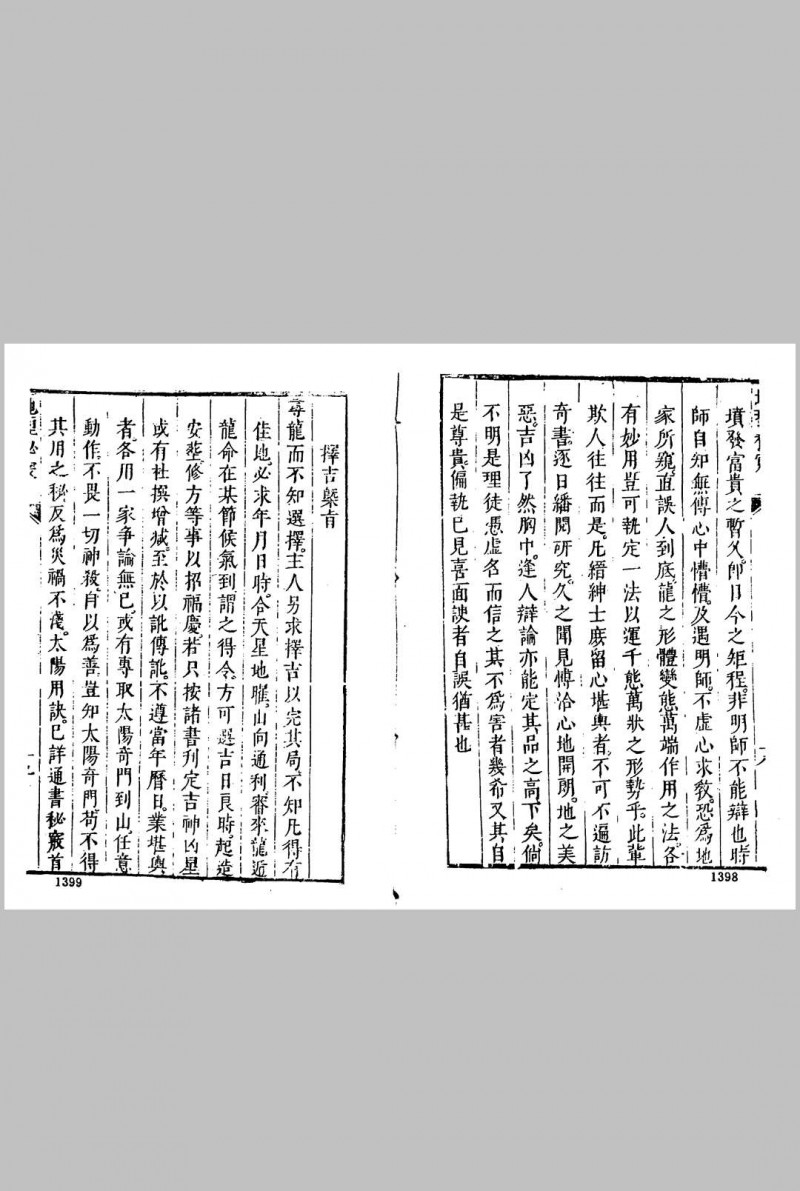 墳發富貴之暫久。即日今之矩程。非明師不能辯也時
師自知無傳心中懵懵。及遇明師。不虛心求敎。恐為地
家所窺。直誤人到底。龍之形體變態萬端作用之法。各
有妙用豈可執定一法以運千態萬狀之形勢乎。此輩
欺人往往而是。凡縉紳士庶留心堪輿者。不可不遍訪
奇書。逐日繙閱研究。久之聞見博洽心地開朗。地之美
惡。吉凶了然胸中。逢人辯論亦能定其品之高下矣。倘
不明是理徒憑虛名而信之其不為害者幾希又其自
是尊貴。偏執已見喜面諛者自誤猶甚也
1398
擇吉槩言
尋龍而不知選擇。主人另求擇吉以完其局。不知凡得有
佳地。必求年月日時。合天星地曜。山向通利。審來龍近
龍命在某節候氣到謂之得令。方可選吉日良時。起造
安塟。修方等事以招福慶。若只按諸書刋定吉神凶星
或有杜撰增減。至於以訛傳訛。不遵當年曆日。業堪輿
者。各用一家爭論無已。或有專取太陽奇門到山。任意
動作。不畏一切神殺。自以為善。豈知太陽奇門苟不得
其用之秘反為災禍不淺。太陽用訣。已詳通書秘竅首
1399